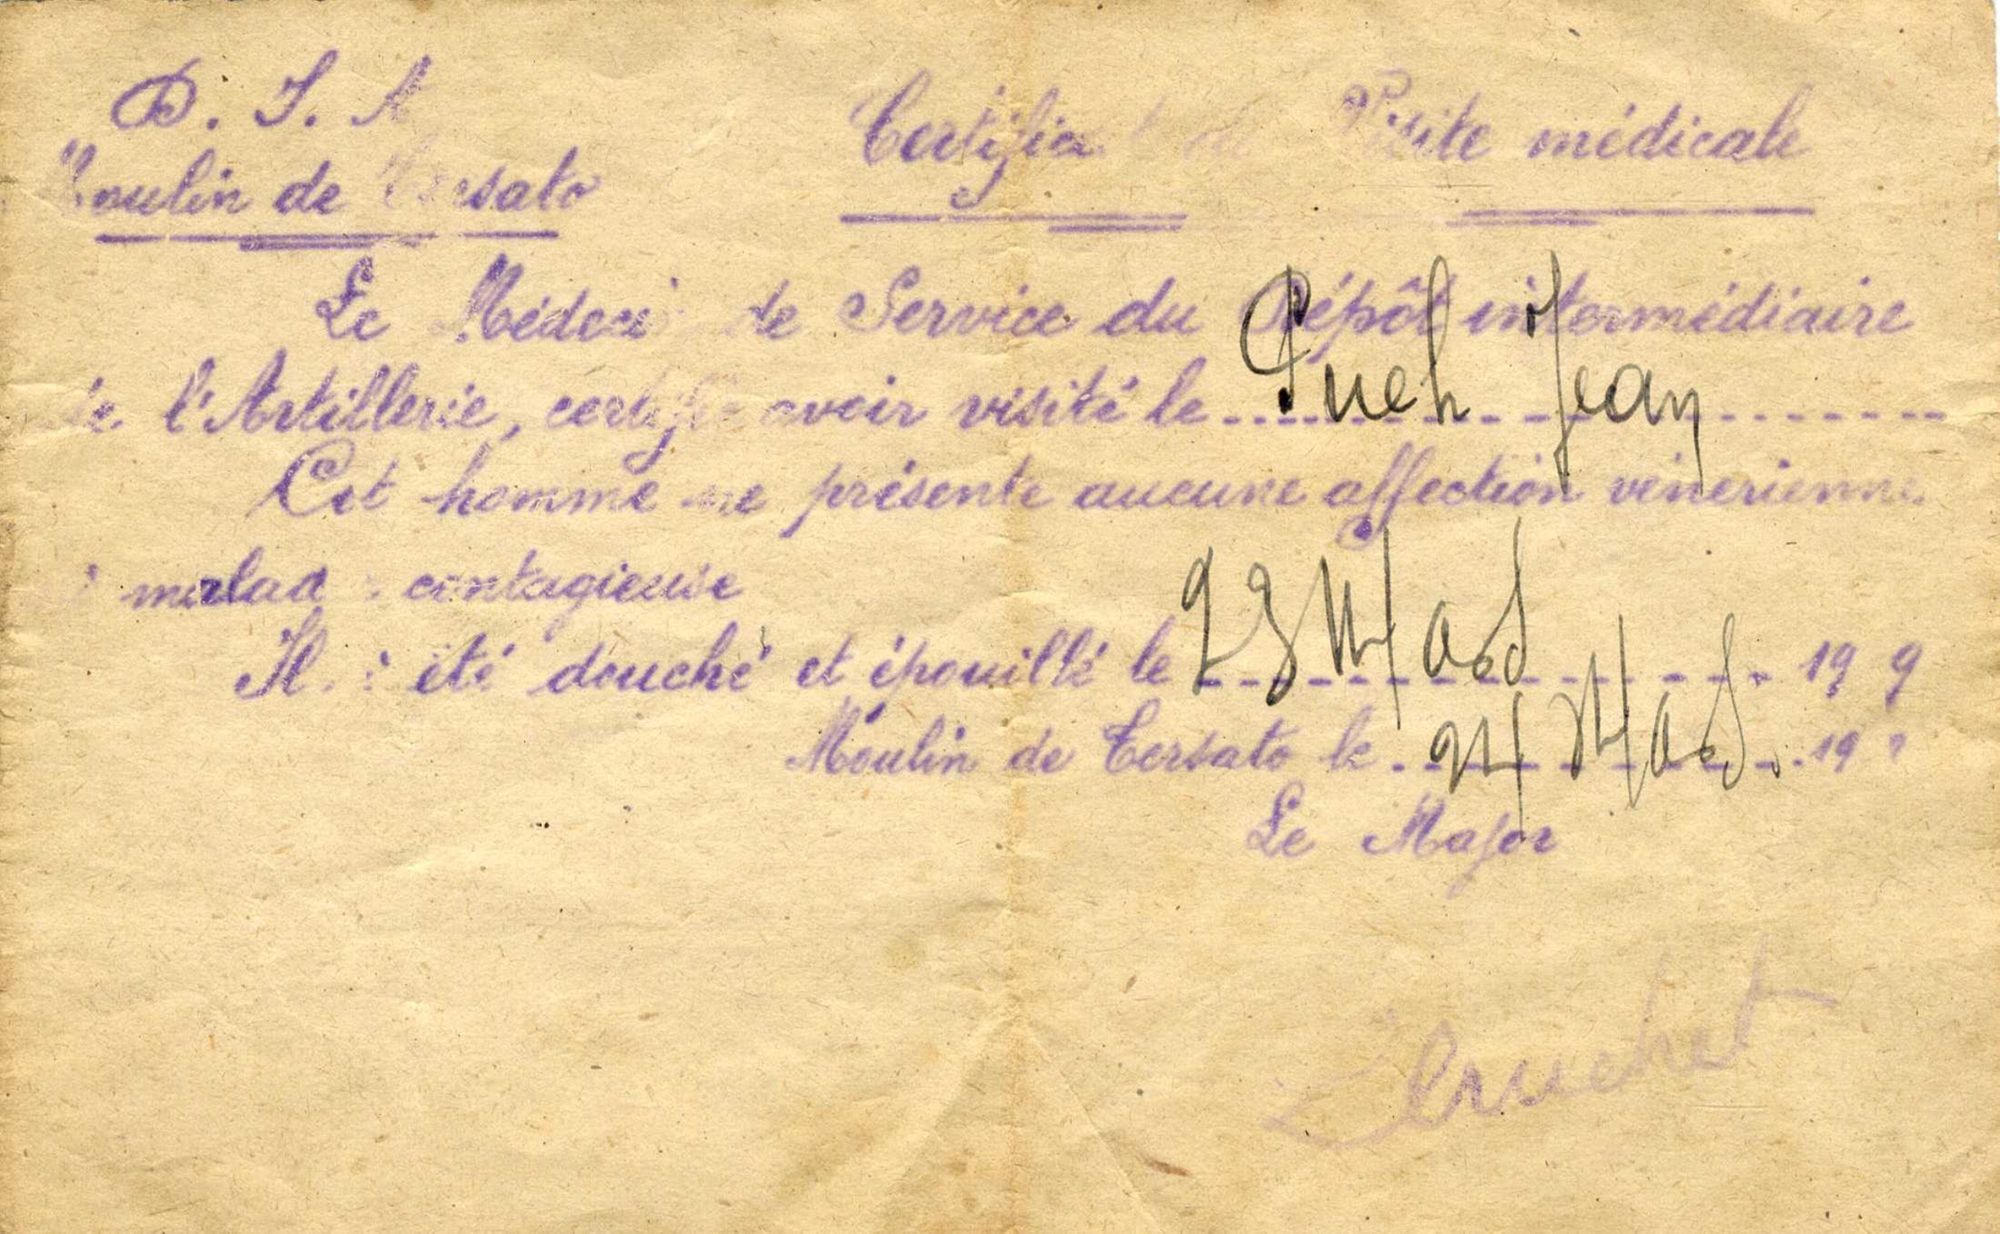 D. I. A
Moulin de Tersato
Certificat de Visite médicale
Le Médecin de Service du Dépôt intermédiaire
de l'Artillerie, certifie avoir visité le Puech Jean
Cet homme ne présente aucune affection vénérienne
ni maladie contagieuse
Il a été douché et épouillé le 23 Mars 19 9
Moulin de Tersato le 24 Mars. 19
Le Major